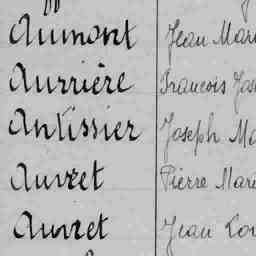 Aumont Jean Mari
Aurrière Francois Jos
Antissier Joseph Ma
Auvret Pierre Mari
Auvret Jean Lou